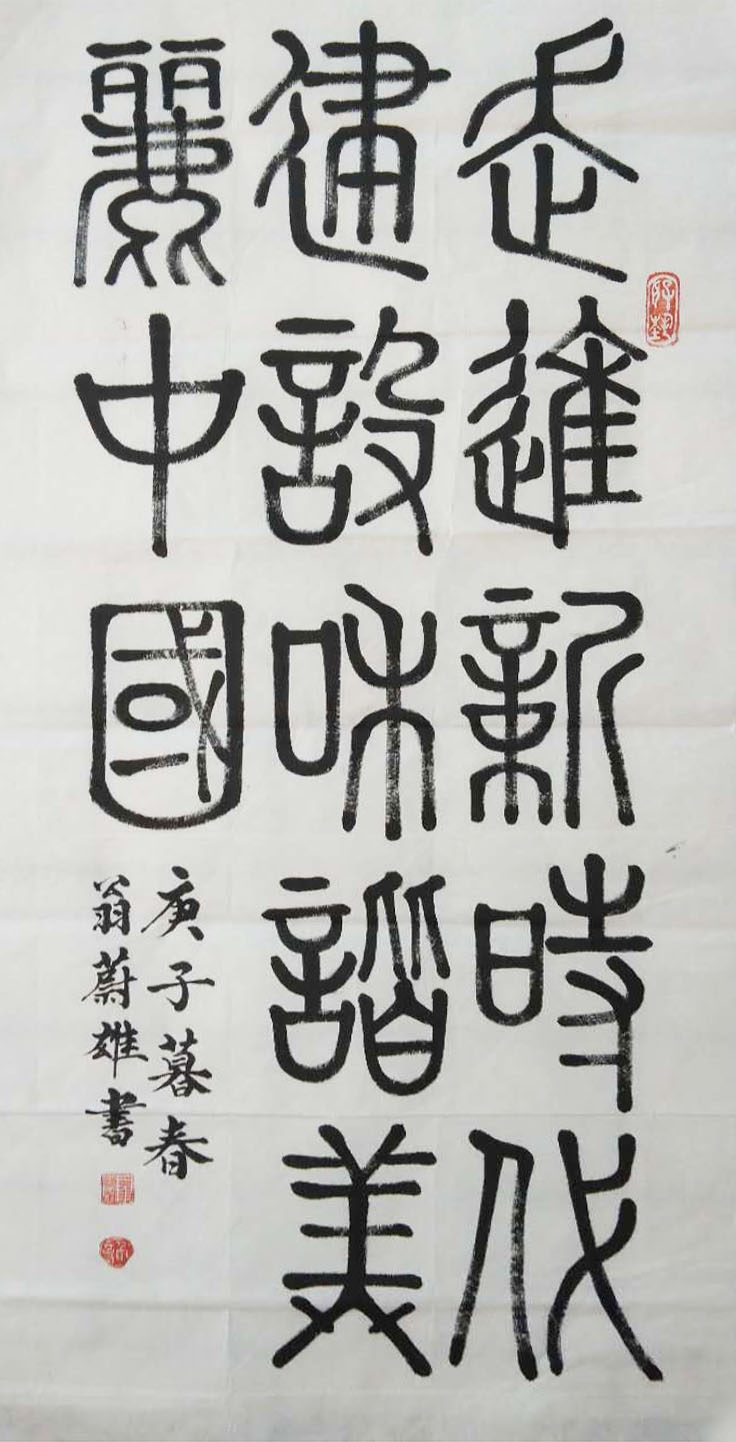 走進新時代
建設和諧美
麗中國
庚子暮春
翁蔚雄書